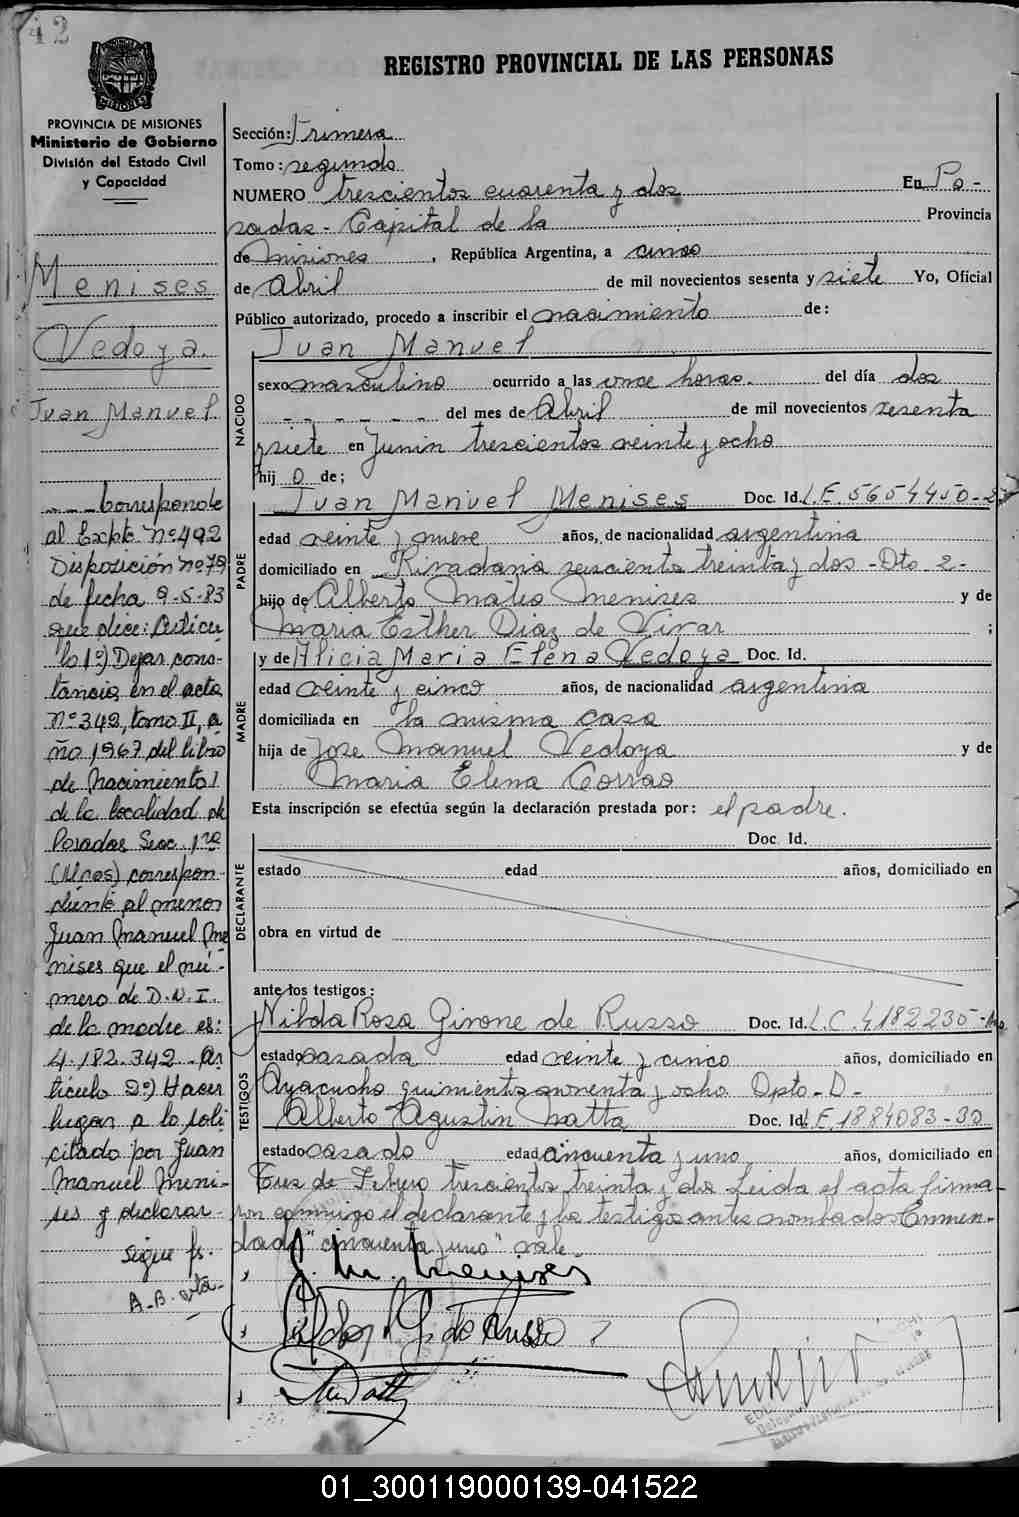 42
REGISTRO PROVINCIAL DE LAS PERSONAS
PROVINCIA DE MISIONES
Ministerio de Gobierno
División del Estado Civil
y Capacidad
Menises
Vedoya.
Juan Manuel
Corresponde
al Expte nº 492
Disposición nº 79
de fecha 9-5-83
que dice: Articu
lo 1º) Dejar cons-
tancia en el acta
Nº 342, tomo II, a
ño 1967 del libro
de Nacimiento
de la localidad de
Posadas Secc. 1ra
(Mnes) correspon-
diente al menor
Juan Manuel Me
nises que el nú-
mero de D.N.I.
de la madre es:
4.182.342. Ar
tículo 2º) Hacer
lugar a lo soli
citado por Juan
Manuel Meni-
ses y declarar-
sigue fs.
A-B- vta-
Sección: Primera
Tomo: segundo
NUMERO trescientos cuarenta y dos En Po-
sadas - Capital de la Provincia
de Misiones, República Argentina, a cinco
de Abril de mil novecientos sesenta y siete Yo, Oficial
Público autorizado, procedo a inscribir el nacimiento de:
Juan Manuel
NACIDO
sexo masculino ocurrido a las once horas. del día dos
- - - - - - del mes de Abril de mil novecientos sesenta
y siete en Junin trescientos veinte y ocho
hij o de;
Juan Manuel Menises Doc. Id. L.E. 5654450-
PADRE
edad veinte y nueve años, de nacionalidad argentina
domiciliado en Rivadavia seiscientos treinta y dos - Dto 2-
hijo de Alberto Mateo Menises y de
Maria Esther Diaz de Vivar ;
y de Alicia Maria Elena Vedoya Doc. Id.
MADRE
edad veinte y cinco años, de nacionalidad argentina
domiciliada en la misma casa
hija de Jose Manuel Vedoya y de
Maria Elena Corrao
Esta inscripción se efectúa según la declaración prestada por: el padre.
Doc. Id.
DECLARANTE
estado edad años, domiciliado en
obra en virtud de
ante los testigos:
Nilda Rosa Girone de Russo Doc. Id. L.C. 4182235-
TESTIGOS
estado casada edad veinte y cinco años, domiciliado en
Ayacucho quinientos noventa y ocho Dpto - D -
Alberto Agustin Matta Doc. Id. L.E. 1884083-30
estado casado edad cincuenta y uno años, domiciliado en
Tres de Febrero trescientos treinta y dos Leida el acta firma
ron conmigo el declarante y los testigos antes nombrados Enmen-
dado "cincuenta y uno" vale-
J. M. Menises
01_300119000139-041522